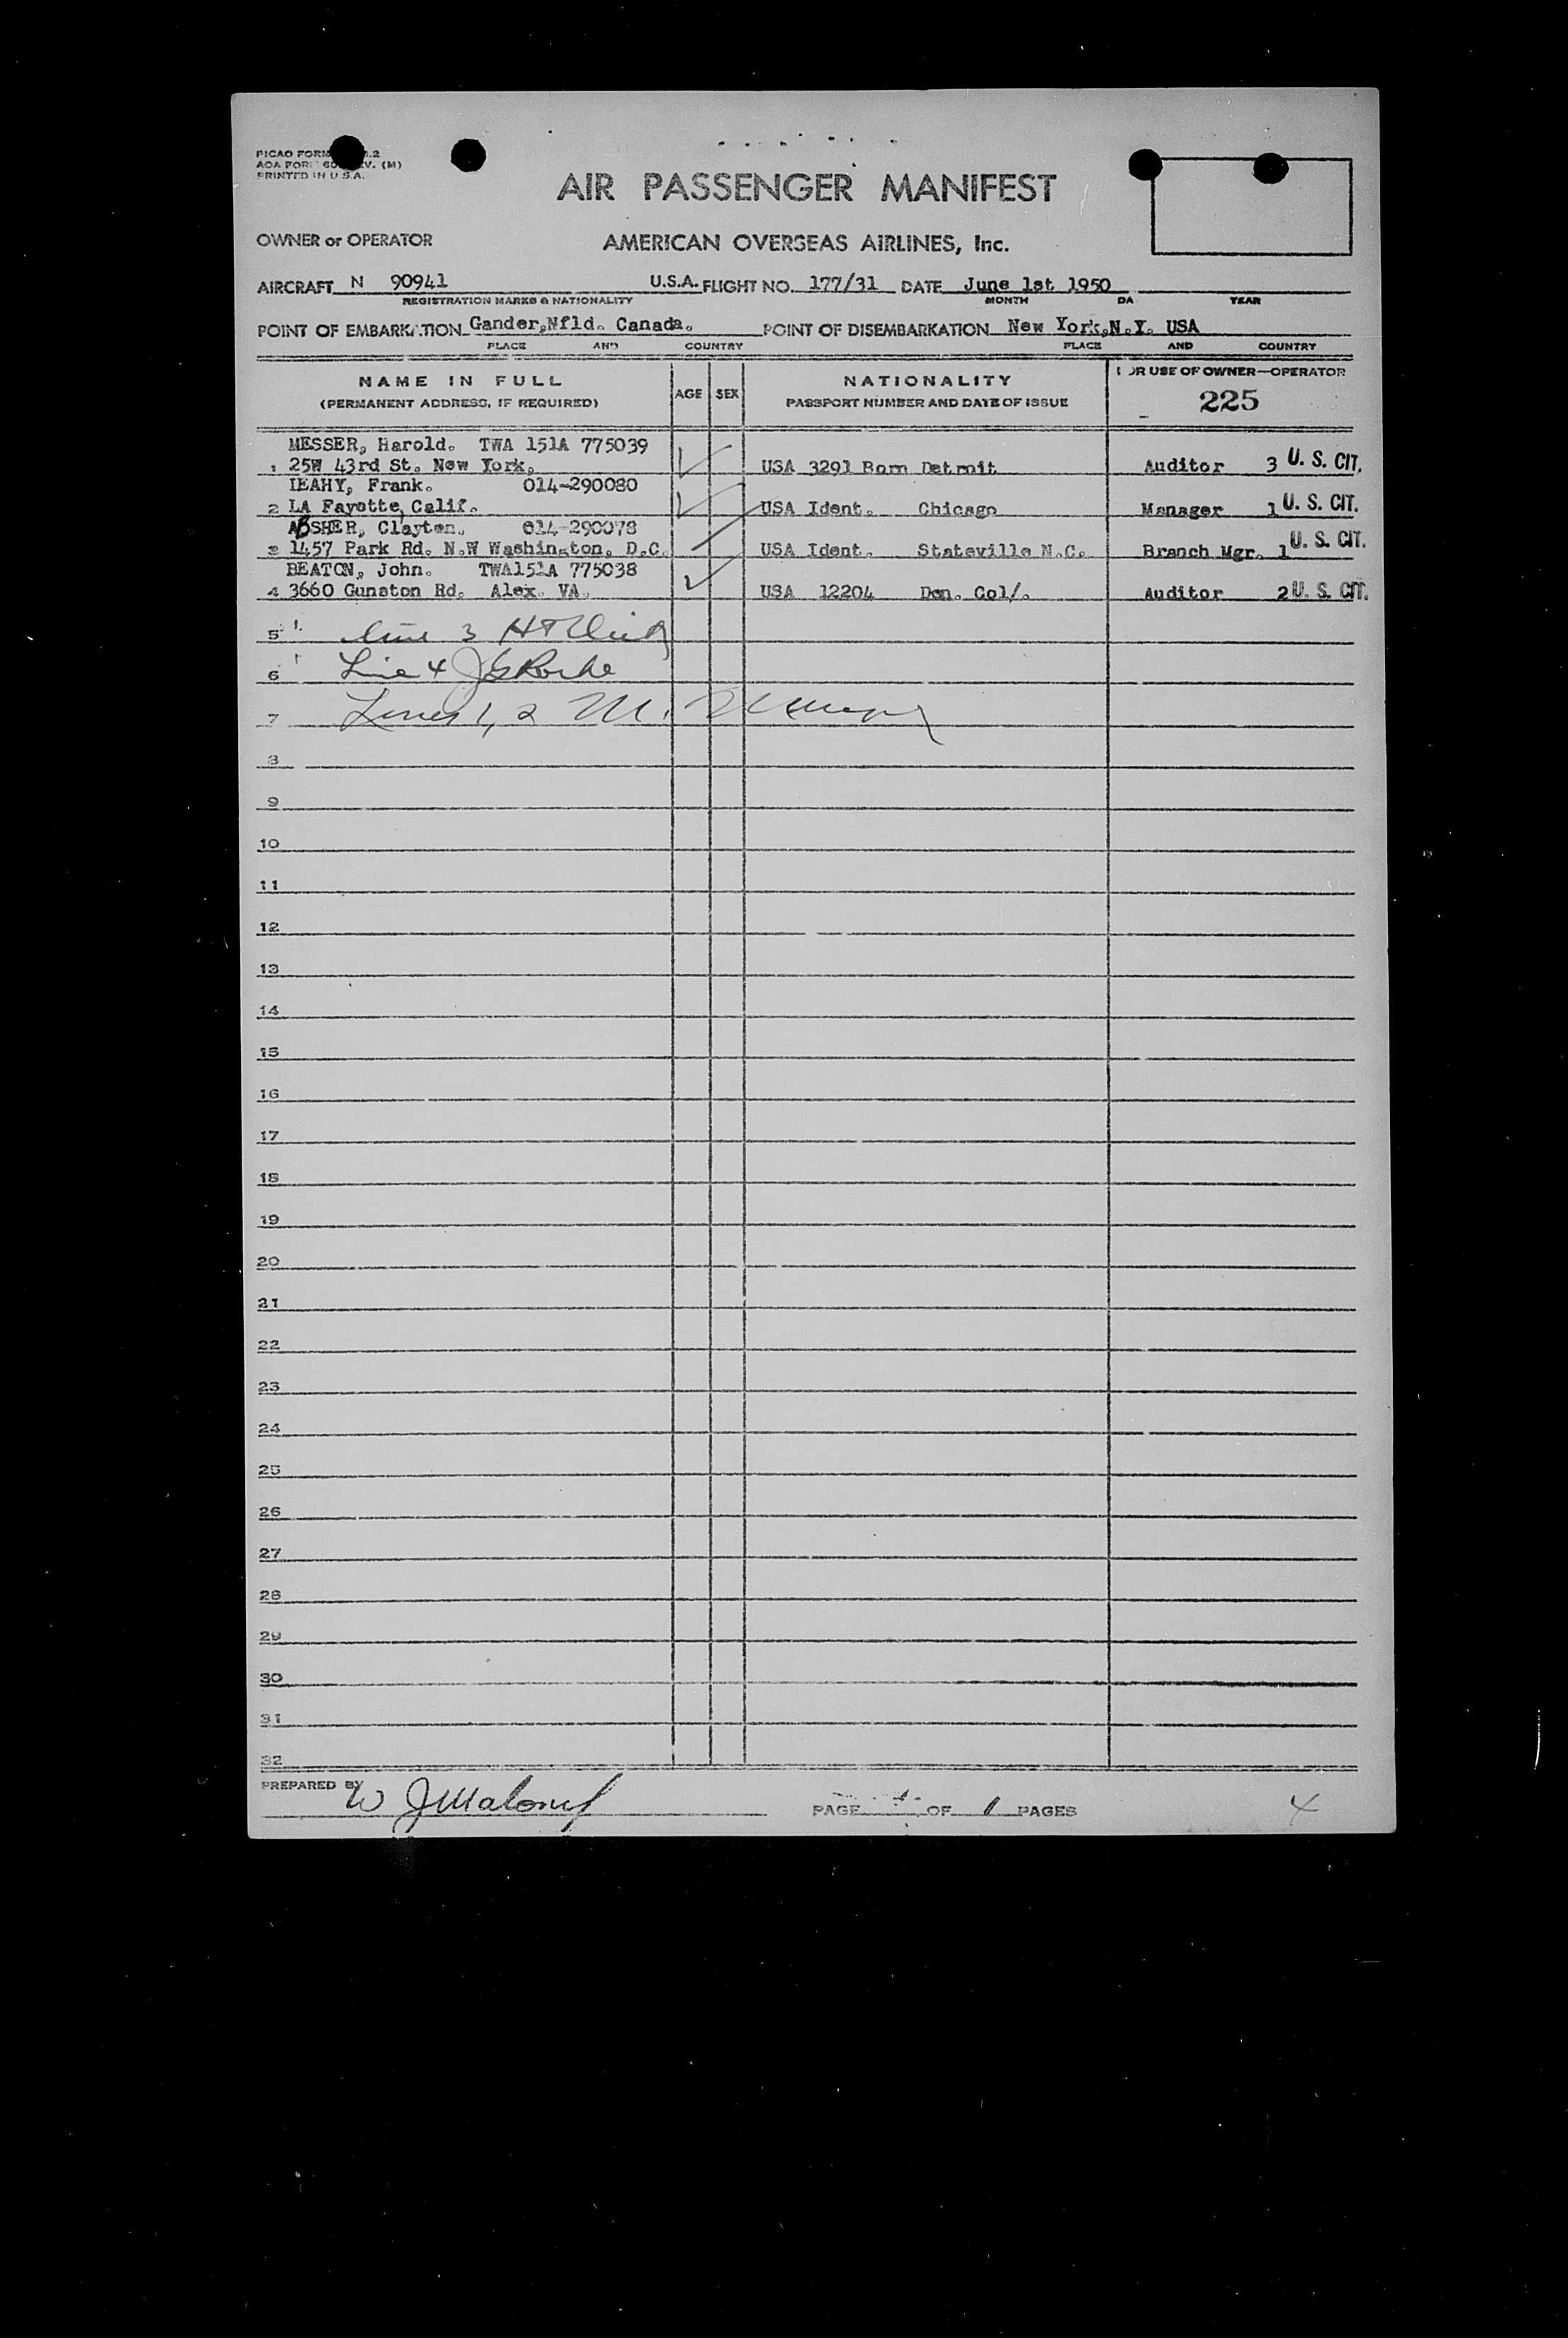 PICAO FORM .2
AOA FOR 60 V. (M)
PRINTED IN U.S.A.
AIR PASSENGER MANIFEST
OWNER or OPERATOR AMERICAN OVERSEAS AIRLINES, Inc.
AIRCRAFT N 90941 U.S.A. FLIGHT NO. 177/31 DATE June 1st 1950
REGISTRATION MARKS & NATIONALITY MONTH DA YEAR
POINT OF EMBARKATION Gander,Nfld. Canada. POINT OF DISEMBARKATION New York,N.Y. USA
PLACE AND COUNTRY PLACE AND COUNTRY
NAME IN FULL AGE SEX NATIONALITY OR USE OF OWNER—OPERATOR
(PERMANENT ADDRESS, IF REQUIRED) PASSPORT NUMBER AND DATE OF ISSUE 225
MESSER, Harold. TWA 151A 775039
1 25W 43rd St. New York, USA 3291 Born Detroit Auditor 3 U. S. CIT.
LEAHY, Frank. 014-290080
2 LA Fayette, Calif. USA Ident. Chicago Manager 1 U. S. CIT.
ABSHER, Clayton. 014-290078
3 1457 Park Rd. N.W Washington, D.C. USA Ident. Stateville N.C. Branch Mgr. 1 U. S. CIT.
BEATON, John. TWA151A 775038
4 3660 Gunston Rd. Alex. VA. USA 12204 Den. Col/. Auditor 2 U. S. CIT.
5 line 3
6 Line 4
7 Lines 1, 2 M.
8
9
10
11
12
13
14
15
16
17
18
19
20
21
22
23
24
25
26
27
28
29
30
31
32
PREPARED BY W J Maloney PAGE 1 OF 1 PAGES 4